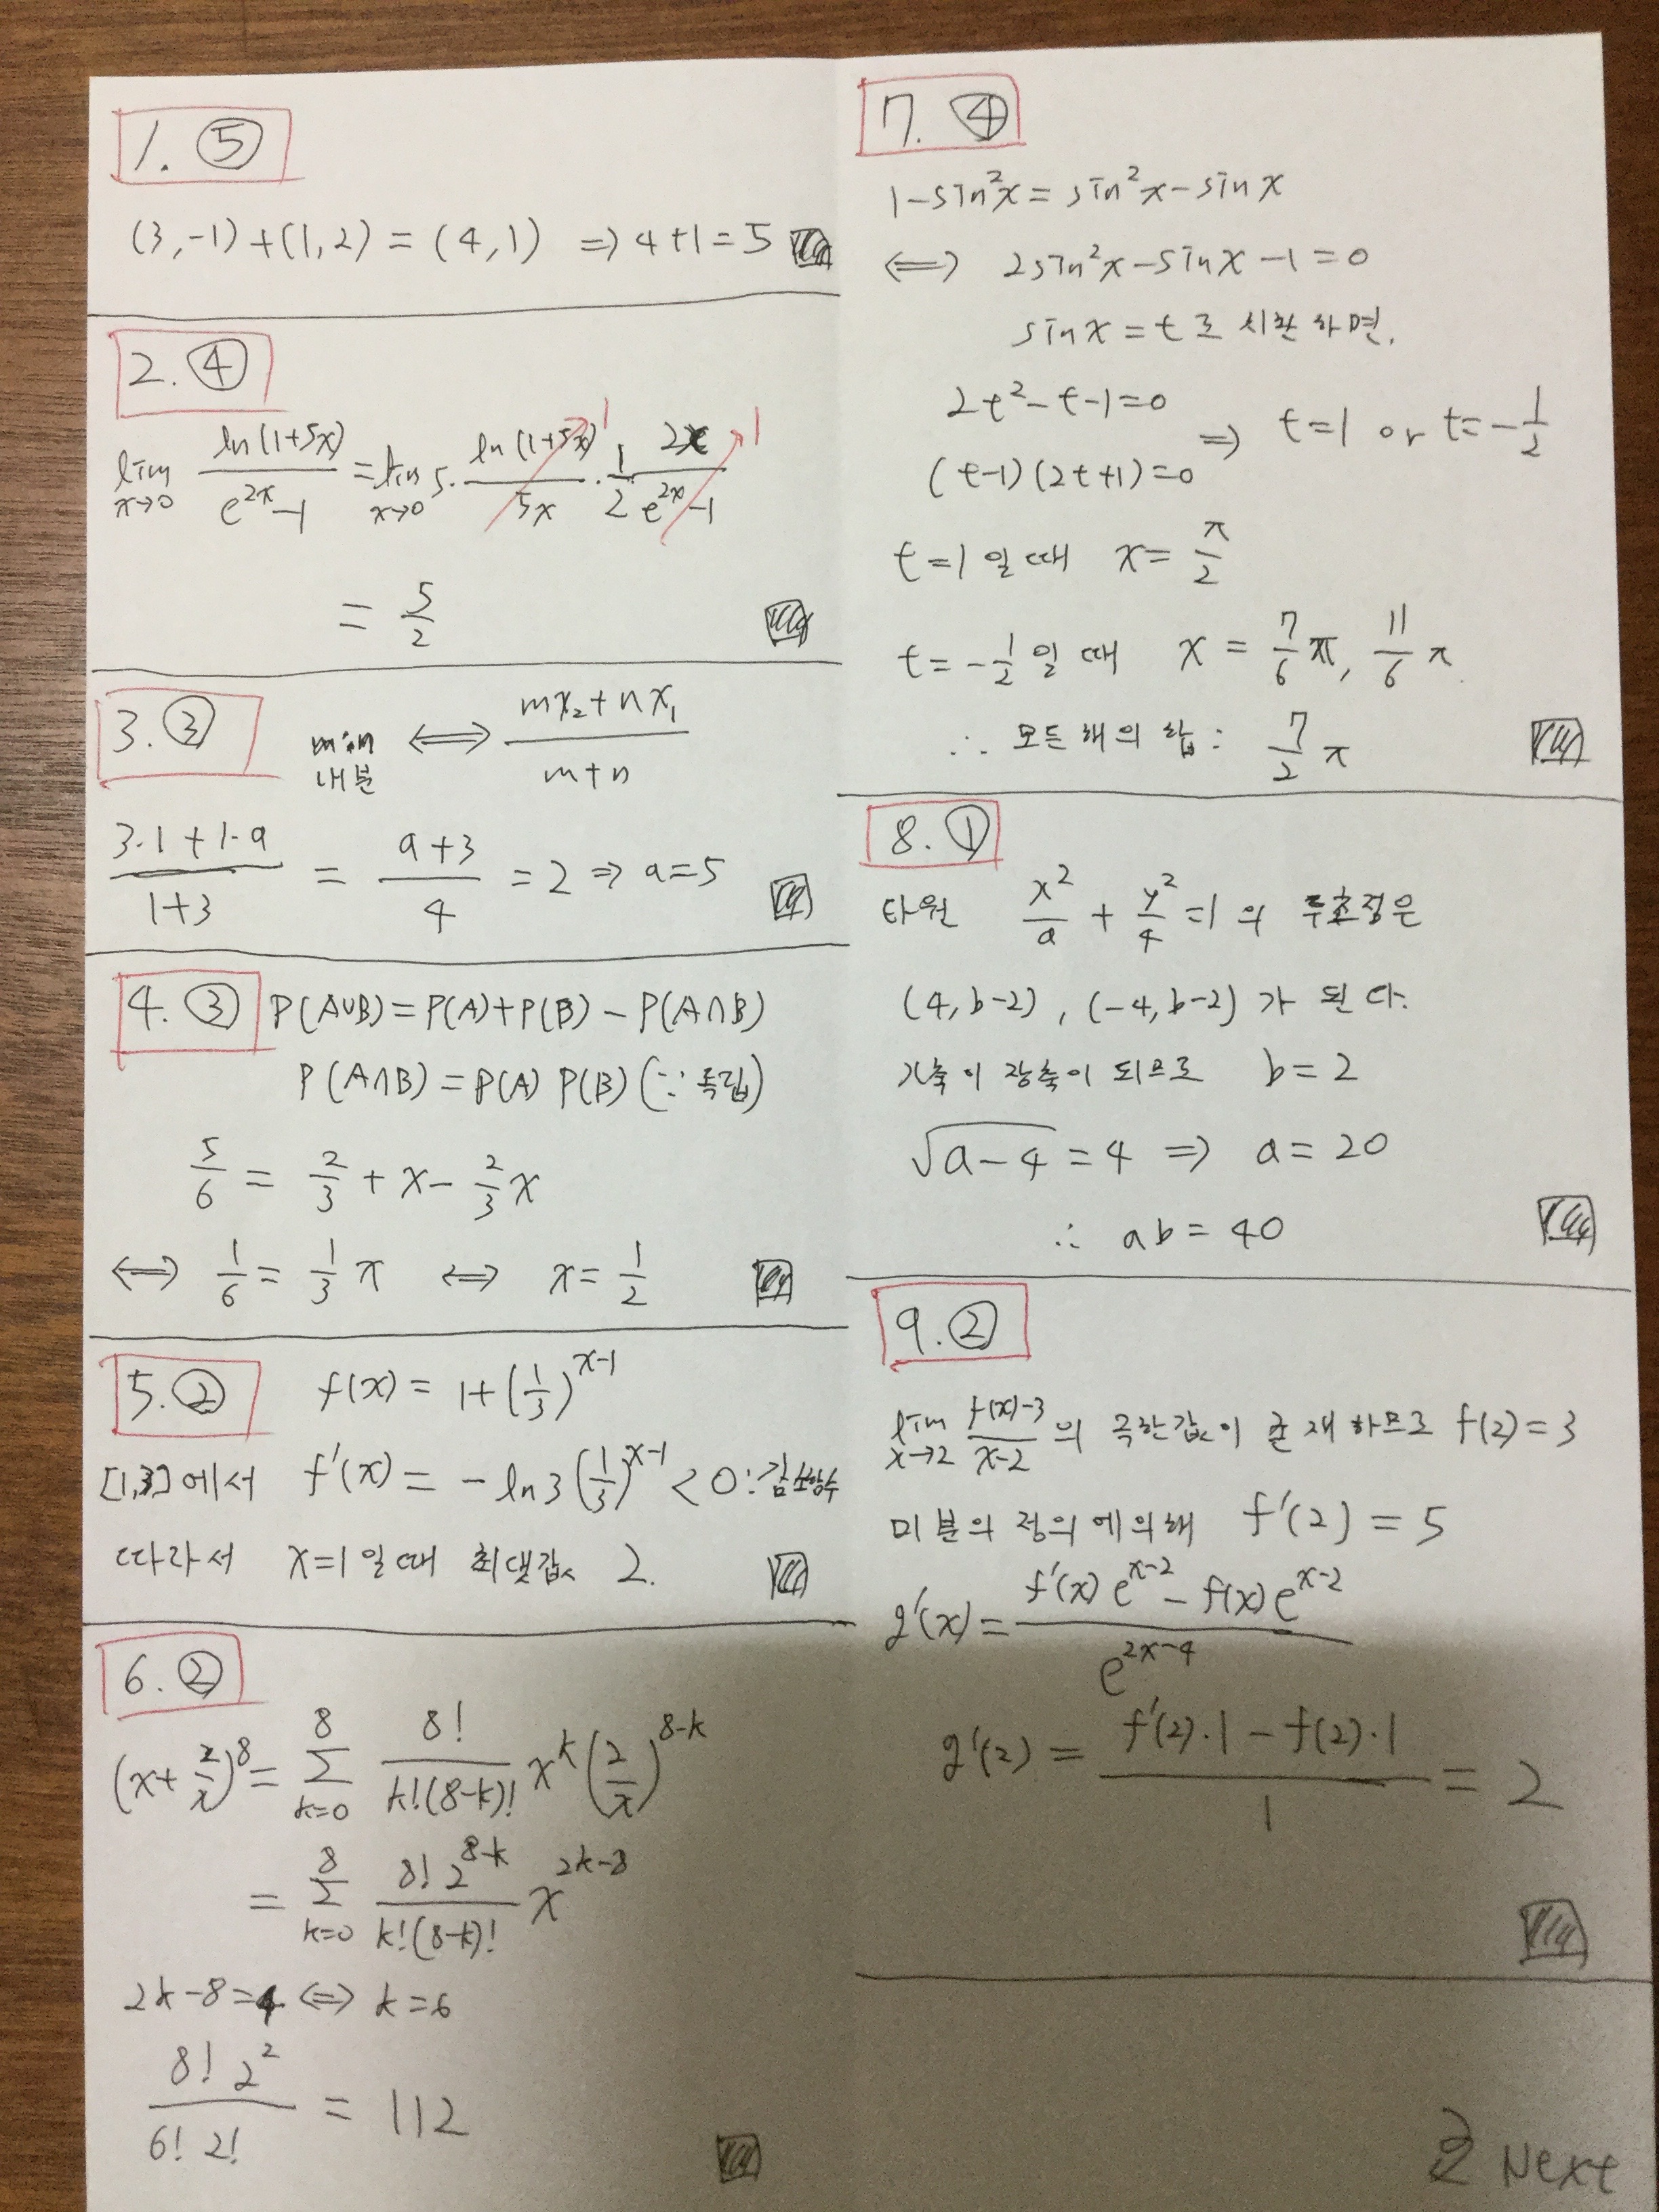 1. ⑤
(3,-1)+(1,2) = (4,1) ⇒ 4+1=5
2. ④
lim x→0 ln(1+5x)/(e^{2x}-1) = lim x→0 5· ln(1+5x)/5x · 1/2 · 2x/(e^{2x}-1) 1 1
= 5/2
3. ③ m:n 내분 ⟺ (mx₂+nx₁)/(m+n)
(3·1+1·a)/(1+3) = (a+3)/4 = 2 ⇒ a=5
4. ③ P(A∪B)=P(A)+P(B)-P(A∩B)
P(A∩B)=P(A)P(B) (∵독립)
5/6 = 2/3 + x - 2/3 x
⟺ 1/6 = 1/3 x ⟺ x = 1/2
5. ② f(x) = 1+(1/3)^{x-1}
[1,3]에서 f'(x) = -ln3(1/3)^{x-1} < 0 : 감소함수
따라서 x=1일때 최댓값 2.
6. ②
(x+2/x)^8 = Σ_{k=0}^{8} 8!/(k!(8-k)!) x^k (2/x)^{8-k}
= Σ_{k=0}^{8} 8! 2^{8-k}/(k!(8-k)!) x^{2k-8}
2k-8=4 ⟺ k=6
8! 2²/(6! 2!) = 112
7. ④
1-sin²x = sin²x-sinx
⟺ 2sin²x-sinx-1=0
sinx=t로 치환하면,
2t²-t-1=0
(t-1)(2t+1)=0 ⇒ t=1 or t=-1/2
t=1일때 x=π/2
t=-1/2일때 x = 7/6 π, 11/6 π
∴ 모든 해의 합: 7/2 π
8. ①
타원 x²/a + y²/4 = 1의 두초점은
(4,b-2), (-4,b-2)가 된다.
x축이 장축이 되므로 b=2
√(a-4) = 4 ⇒ a=20
∴ ab=40
9. ②
lim x→2 (f(x)-3)/(x-2)의 극한값이 존재하므로 f(2)=3
미분의 정의에의해 f'(2)=5
g'(x) = (f'(x)e^{x-2}-f(x)e^{x-2})/e^{2x-4}
g'(2) = (f'(2)·1-f(2)·1)/1 = 2
Next